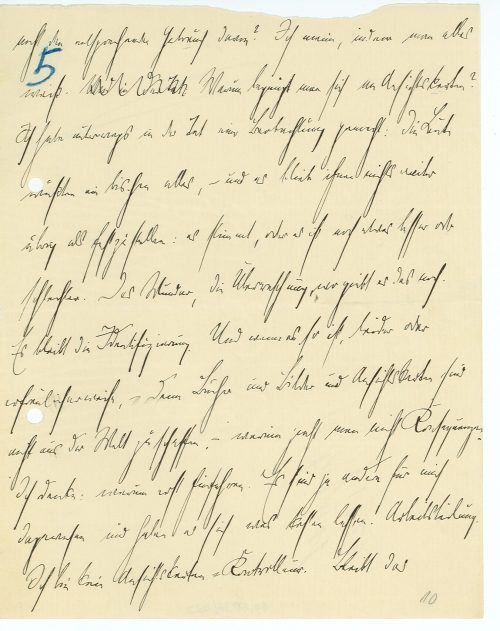 noch den entsprechenden Gebrauch davon? Ich meine, indem man alles
5
weiß. Warum begnügt man sich mit Ansichtskarten?
Ich habe unterwegs in der Tat eine Beobachtung gemacht: die Leute
wußten ein bißchen alles, – und es blieb ihnen nichts weiter
übrig als festzustellen: es stimmt, oder es ist noch etwas besser oder
schlechter. Das Wunder, die Überraschung, wo gibt es das noch.
Es bleibt die Identifizierung. Und wenn es so ist, leider oder
erfreulicherweise, – denn Bücher und Bilder und Ansichtskarten sind
nicht aus der Welt zu schaffen, – warum zieht man nicht
Ich denke: warum erst hinfahren. Es sind ja andere für mich
dagewesen und haben es sich was kosten lassen. Arbeitsteilung.
Ich bin kein Ansichtskarten-Kontrolleur. Bleibt das
10